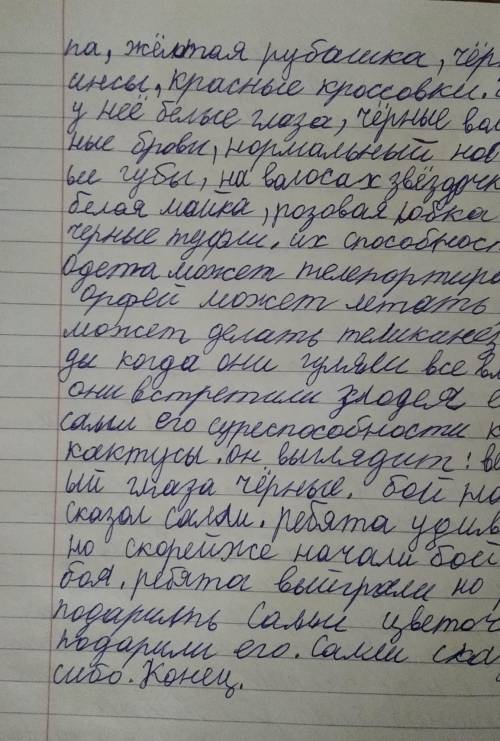 па, жёлтая рубашка, чёр
инсы, красные кроссовки.
у неё белые глаза, чёрные вол
ные брови, нормальный нос
ые губы, на волосах звёздочк
белая майка, розовая юбка
черные туфли. их способност
одета может телепортиро
орфей может летать
может делать теликинез
ды когда они гуляли все вм
они встретили злодея е
салы его суреспособности к
кактусы. он выглядит: вес
ый глаза чёрные. бой на
сказол салли. ребята удив
но скорейже начали бой
боя. ребята выйграли но
подарилть Салли цветоч
подарили его. Салли ска
сибо. Конец.